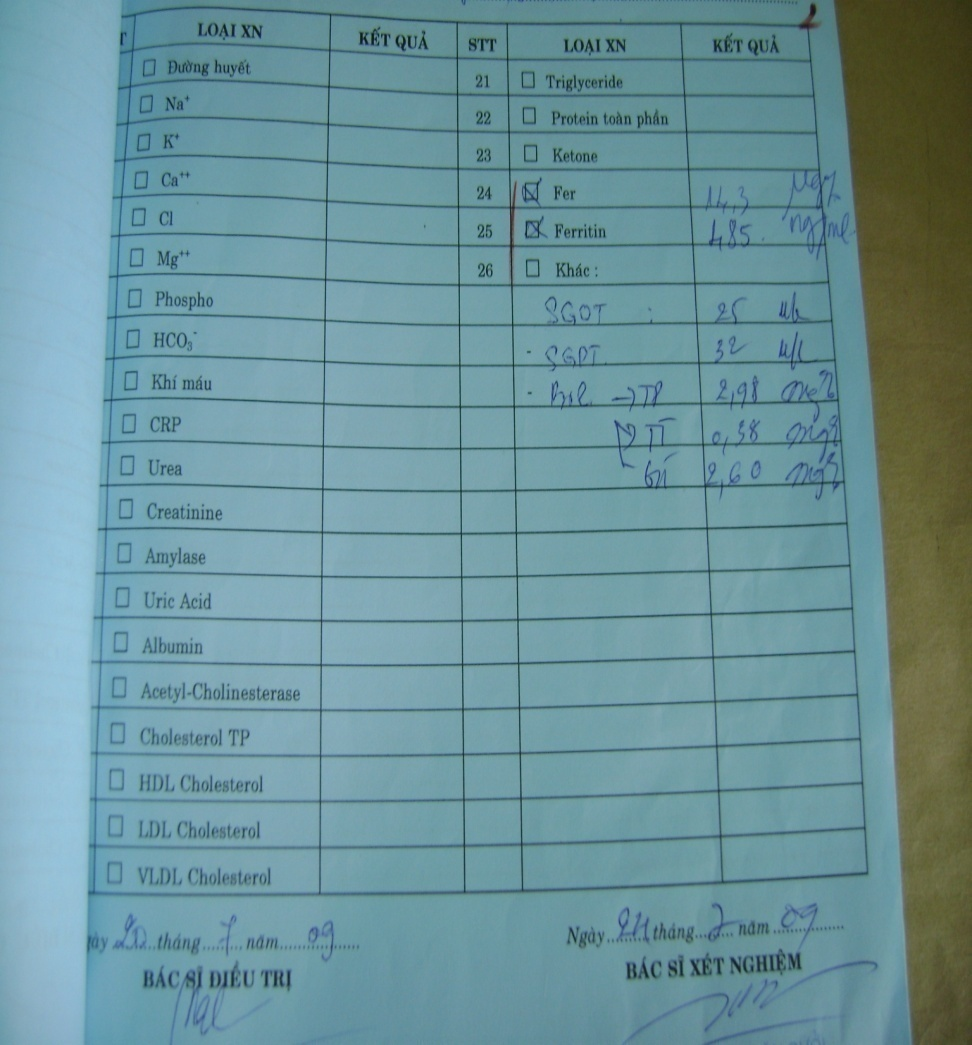 LOẠI XN KẾT QUẢ STT LOẠI XN KẾT QUẢ
Đường huyết 21 Triglyceride
Na⁺ 22 Protein toàn phần
K⁺ 23 Ketone
Ca⁺⁺ 24 Fer 14,3
Cl 25 Ferritin 485 ng/ml
Mg⁺⁺ 26 Khác :
Phospho SGOT : 25 U/L
HCO₃⁻ - SGPT 32 U/L
Khí máu - Bil → TP 2,98 mg%
CRP TT 0,38 mg%
Urea GT 2,60 mg%
Creatinine
Amylase
Uric Acid
Albumin
Acetyl-Cholinesterase
Cholesterol TP
HDL Cholesterol
LDL Cholesterol
VLDL Cholesterol
tháng 7 năm 09 Ngày tháng năm 09
BÁC SĨ ĐIỀU TRỊ BÁC SĨ XÉT NGHIỆM